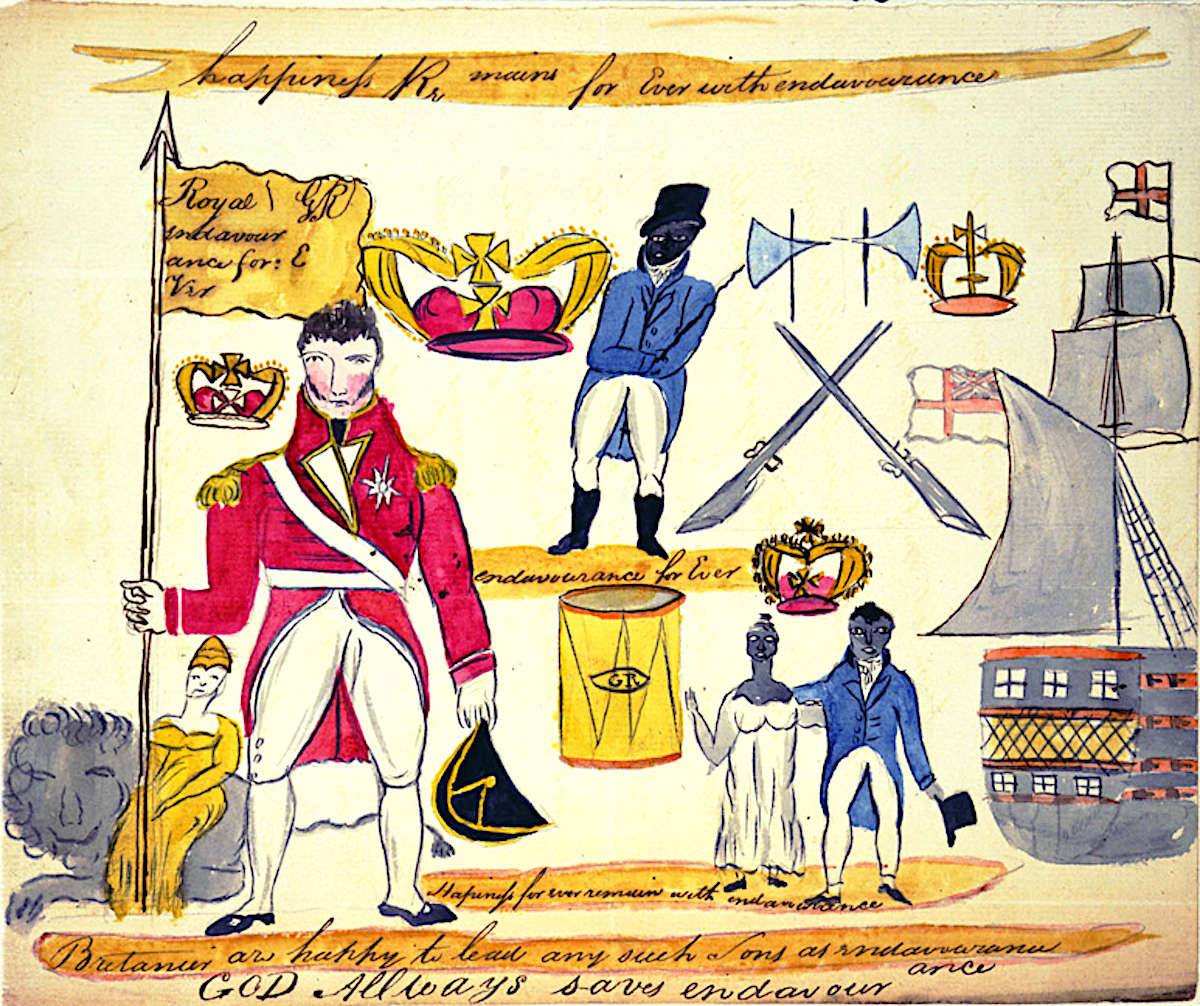 happiness Re mains for Ever with endavourance
Royal GR
endavour
ance for: E
Ver
endavourance for Ever
GR
Hapiness for ever remain with endavourance
Bretanier are happy to lead any such Sons as Endavourance
ance
GOD Allways saves endavour